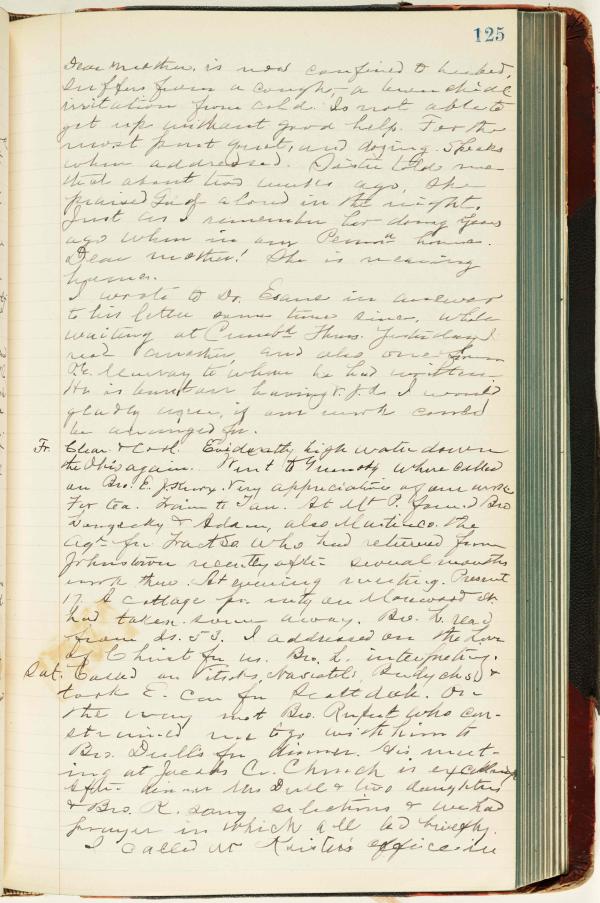 125
Dear mother, is now confined to her bed,
suffers from a cough, a bronchial
irritation from cold. Is not able to
get up without good help. For the
most part quiet, and dozing. Speaks
when addressed. Sister told me
that about two weeks ago, she
praised God aloud in the night.
Just as I remember her doing years
ago when in our Penna home.
Dear mother! She is nearing
home.
I wrote to Dr. Evans in answer
to his letter some time since, while
waiting at Thurs. Yesterday I
recd another, and also one from
P.E. Murray to whom he had written.
He is having I would
gladly agree, if our work could
be arranged for.
Fr. Clear & Cool. Evidently high water down
the Ohio again. Went to where called
on Bro. E. J. Very appreciative of our work
For tea. Train to At Mt P. found Bro
& Adam, also the
Agt for Tract So. who had returned from
Johnstown recently after several months
work there. At evening meeting. Present
17. A cottage pr. mtg on St.
had taken some away. Bro. L. read
from Is. 53. I addressed on the Love
of Christ for us. Bro. L. interpreting.
Sat. Called on &
took E. Car for Scottdale. On
the way met Bro. who con-
strained me to go with him to
Bro. for dinner. His meet-
ing at Jacobs Cr. Church is excellent
After dinner Mrs & two daughters
& Bro. R. sang selections & we had
prayer in which all led briefly.
I called at Keister's office in